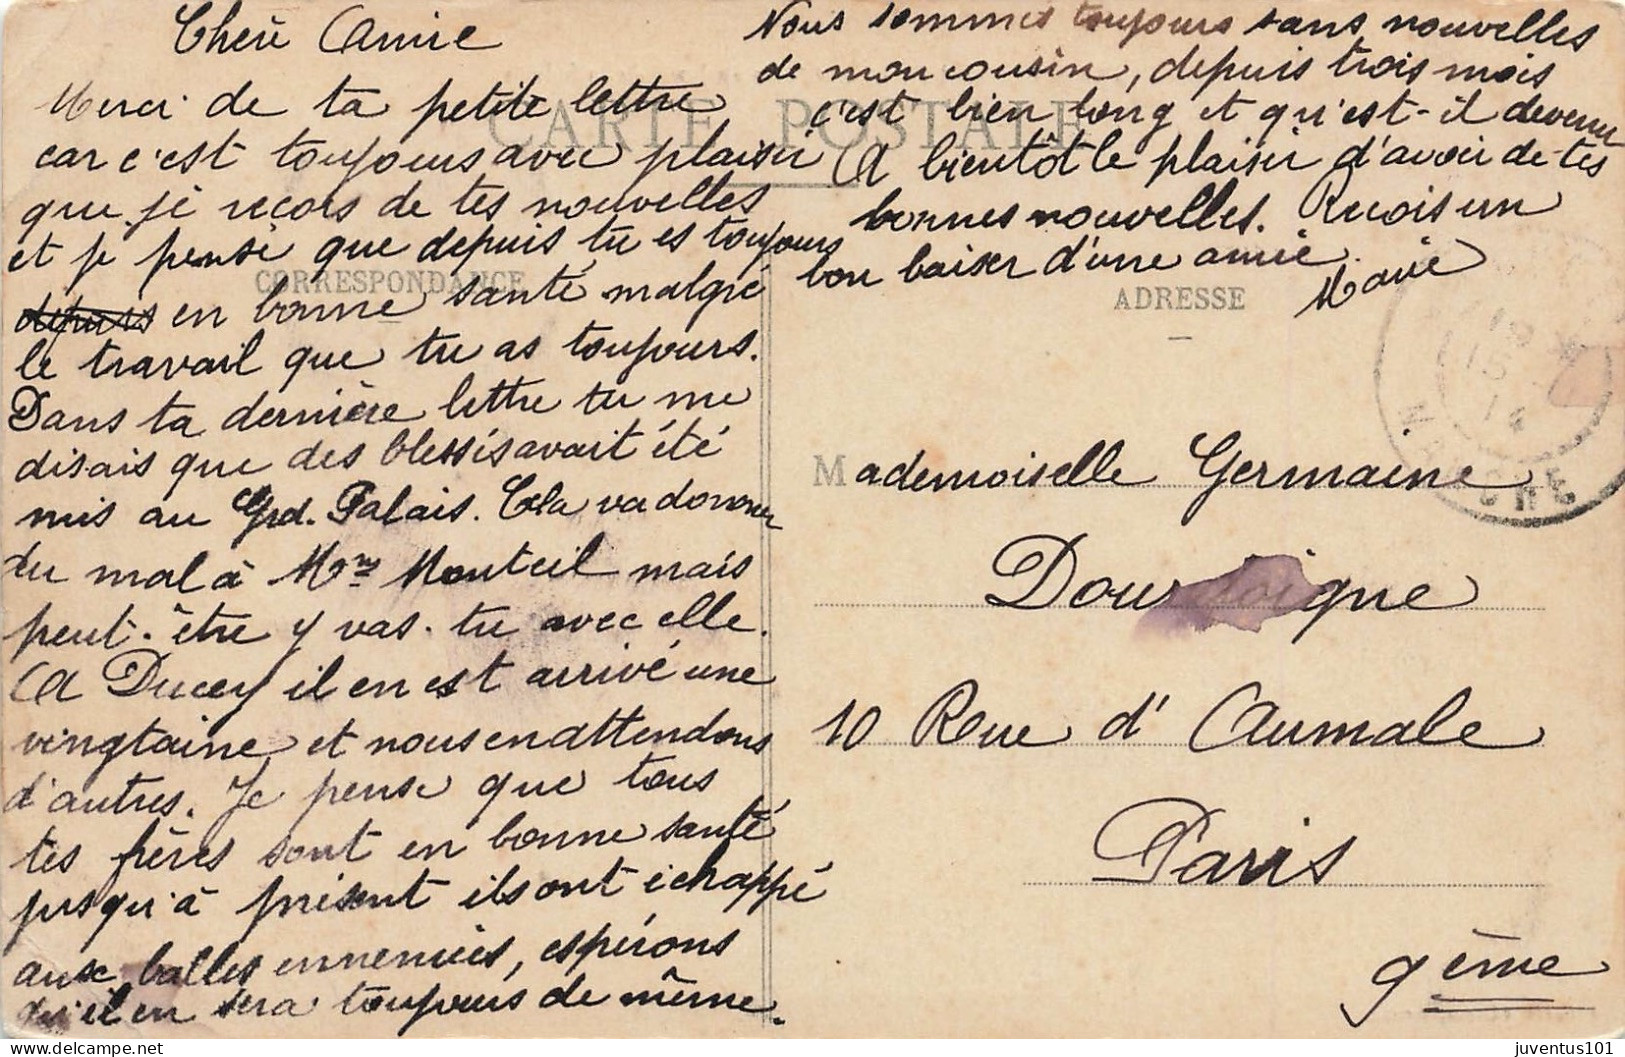 Chère Amie
Merci de ta petite lettre
car c'est toujours avec plaisir
que je reçois de tes nouvelles
et je pense que depuis tu es toujours
depuis en bonne santé malgré
le travail que tu as toujours.
Dans ta dernière lettre tu me
disais que des blessis avait été
mis au Grd. Palais. Cela va donner
du mal à Mme Monteil mais
peut-être y vas-tu avec elle.
A Ducey il en est arrivé une
vingtaine et nous en attendons
d'autres. Je pense que tous
tes frères sont en bonne santé
jusqu'à présent ils ont échappé
aux balles ennemies, espérons
qu'il en sera toujours de même.
Nous sommes toujours sans nouvelles
de mon cousin, depuis trois mois
c'est bien long et qu'est-il devenu
A bientôt le plaisir d'avoir de tes
bonnes nouvelles. Reçois un
bon baiser d'une amie
Marie
CARTE POSTALE
CORRESPONDANCE
ADRESSE
Mademoiselle Germaine
10 Rue d'Aumale
Paris
9ème
juventus101